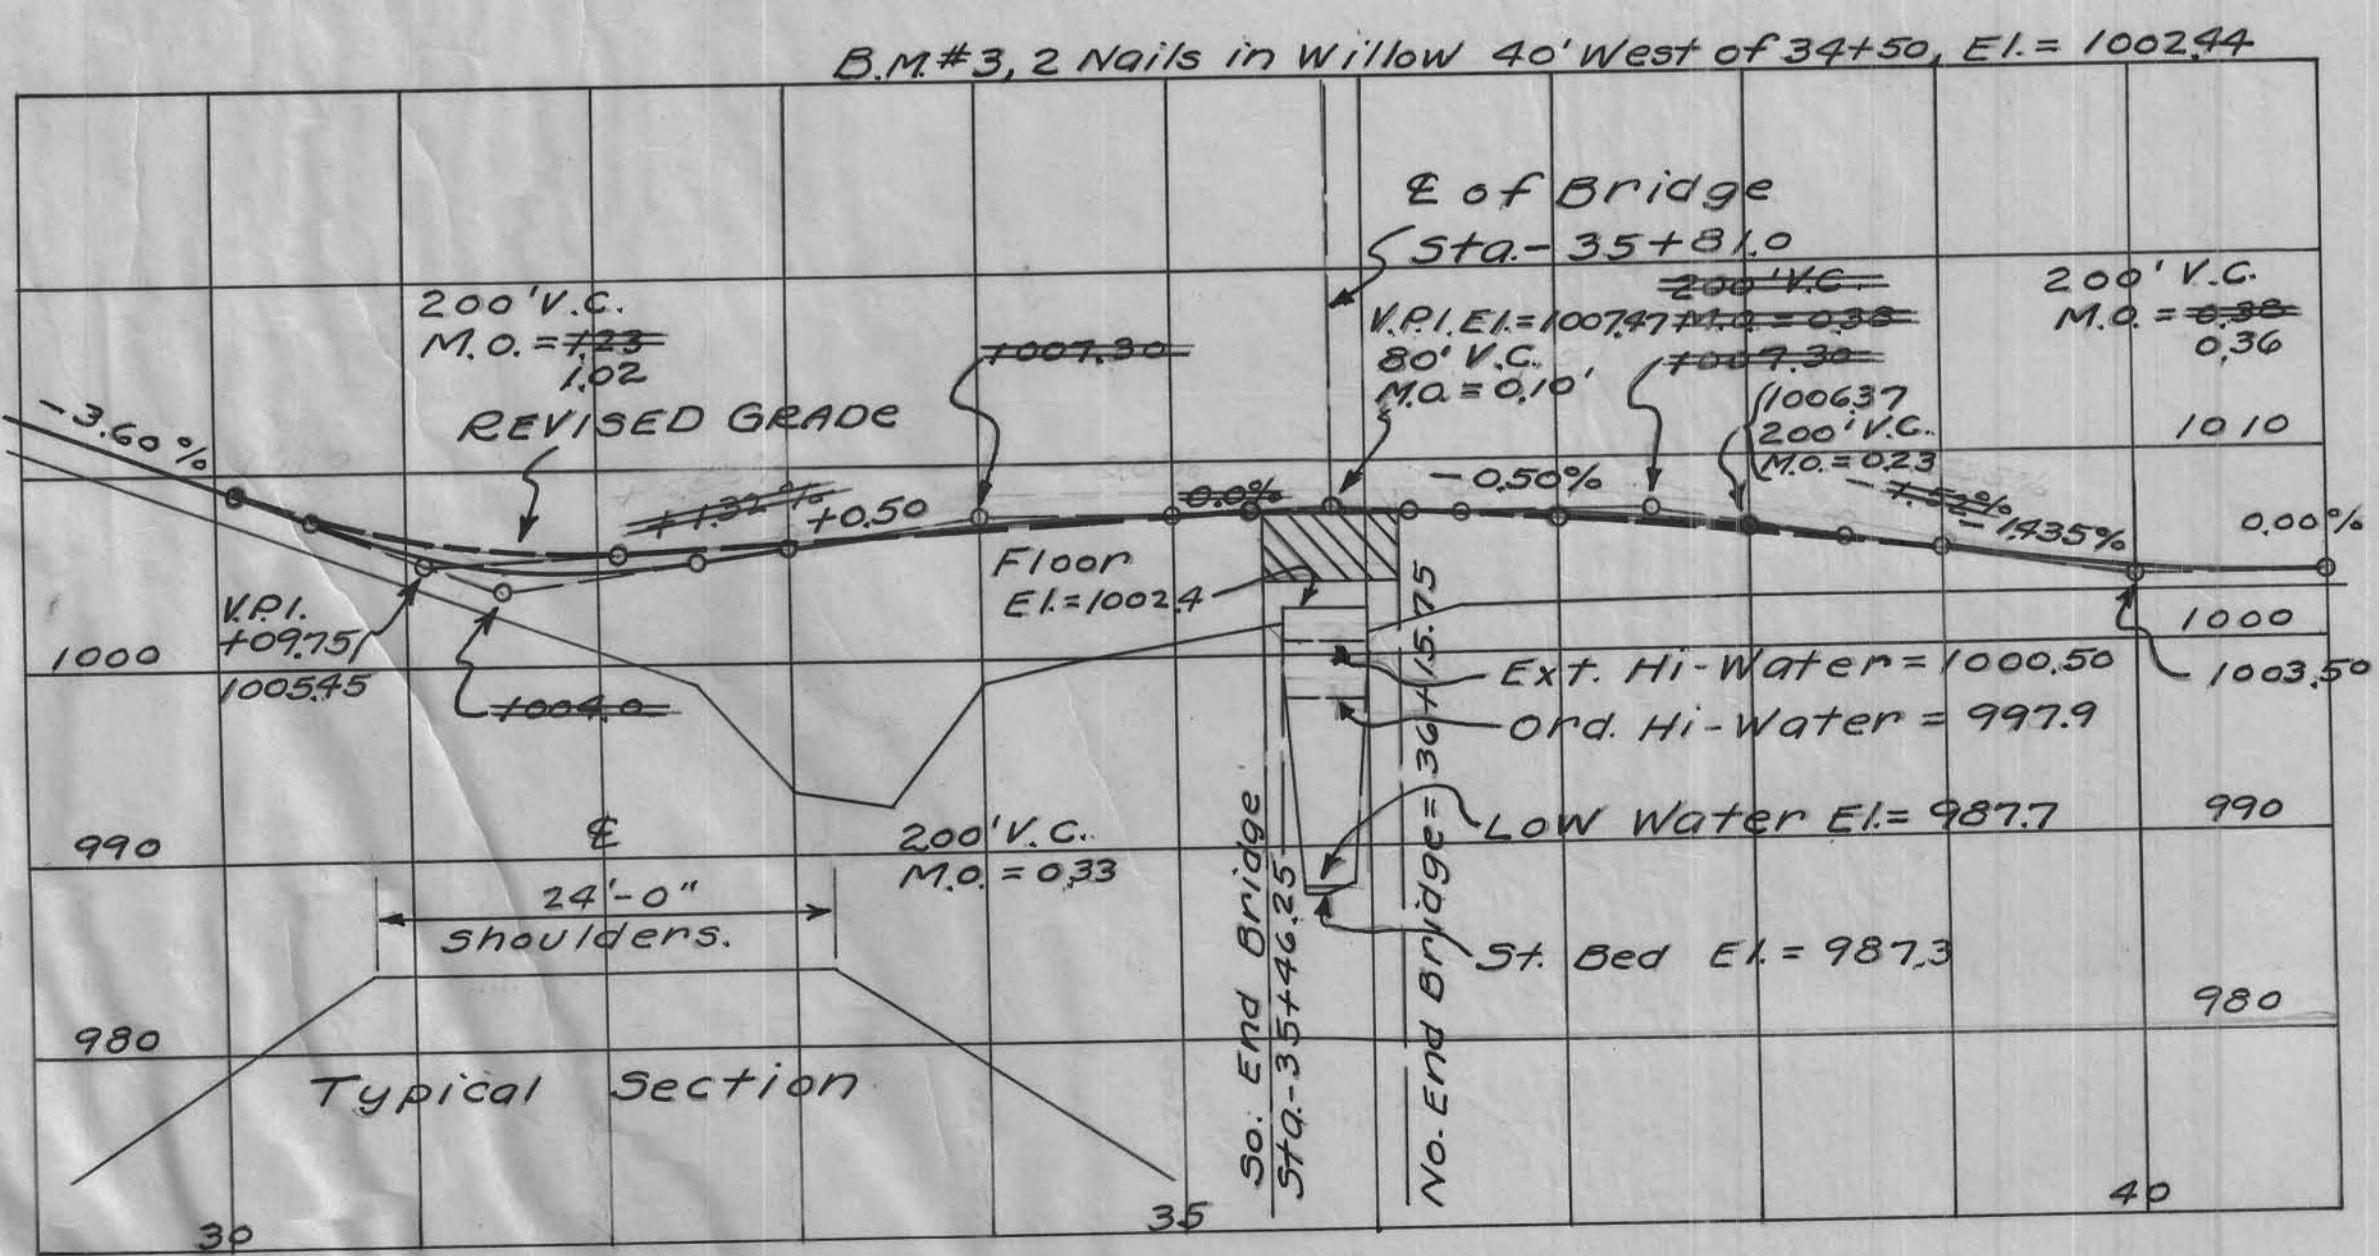 B.M.#3, 2 Nails in Willow 40' West of 34+50, El. = 1002.44
℄ of Bridge
Sta.- 35+81.0
200' V.C.
M.O. = 1.23
1.02
REVISED GRADE
-3.60%
1007.30
V.P.I. El.=1007.47
80' V.C.
M.O. = 0.10'
200' V.C.
M.O. = 0.38
1007.30
1006.37
200' V.C.
M.O. = 0.23
200' V.C.
M.O. = 0.38
0.36
1010
+1.32%
+0.50
0.0%
-0.50%
-1.52%
-1.435%
0.00%
V.P.I.
+09.75
1005.45
1004.0
Floor
El.=1002.4
1000
1000
1003.50
Ext. Hi-Water = 1000.50
Ord. Hi-Water = 997.9
Low Water El.= 987.7
St. Bed El. = 987.3
990
990
200' V.C.
M.O. = 0.33
℄
24'-0"
shoulders.
Typical Section
980
980
So. End Bridge
Sta.-35+46.25
No. End Bridge = 36+15.75
30
35
40